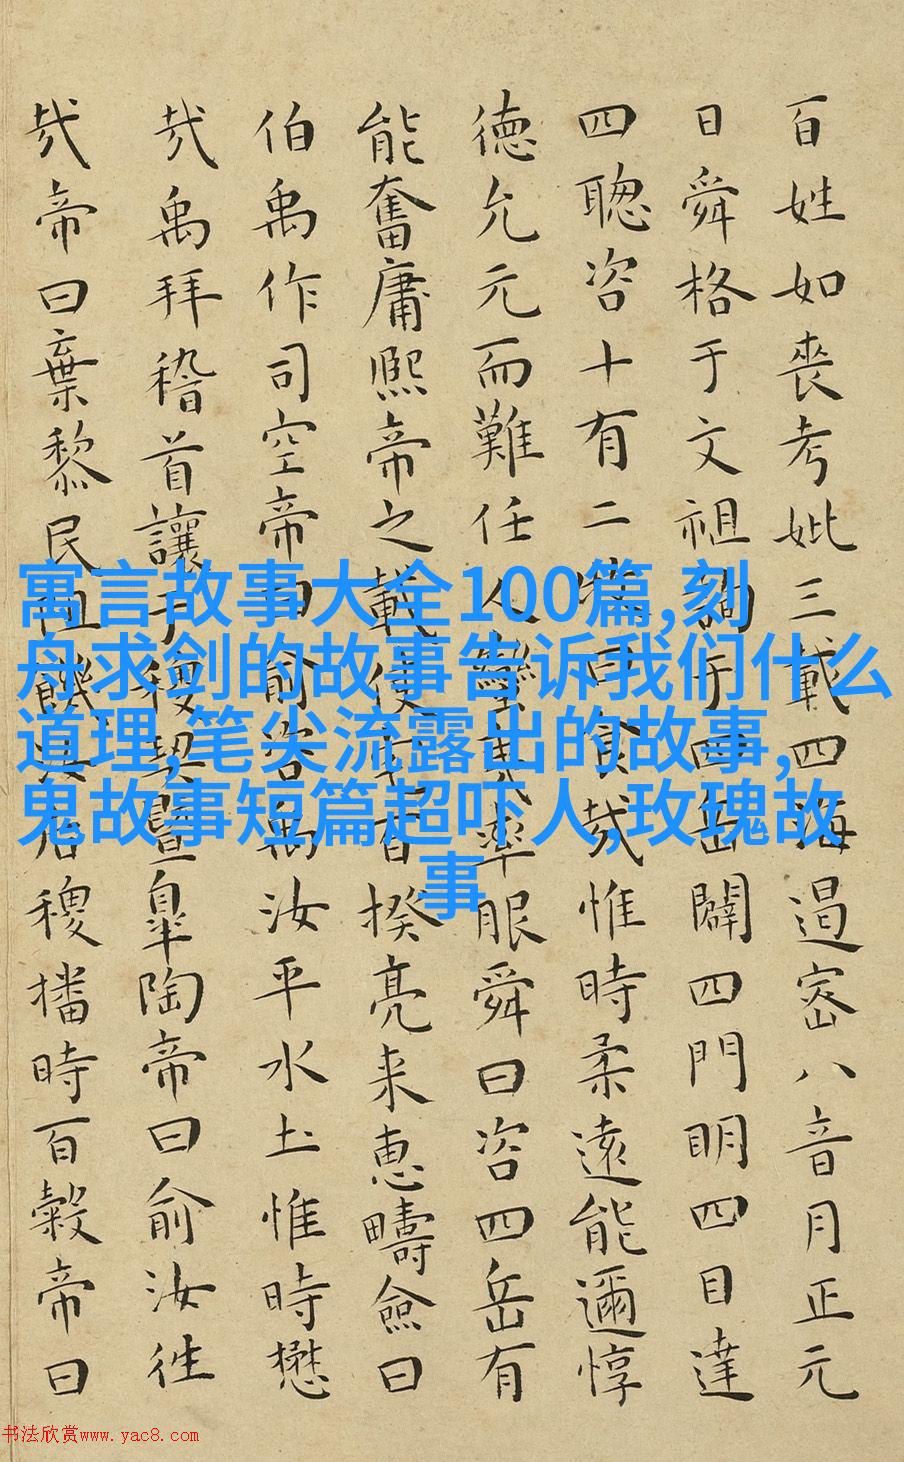 百姓如喪考妣三載四海遏密八音月正元
日舜格于文祖詢于四岳闢四門明四目達
四聰咨十有二牧曰食哉惟時柔遠能邇惇
德允元而難任人蠻夷率服舜曰咨四岳有
能奮庸熙帝之載使宅百揆亮采惠疇僉曰
伯禹作司空帝曰俞咨禹汝平水土惟時懋
哉禹拜稽首讓于稷契暨皋陶帝曰俞汝往
哉帝曰棄黎民阻饑后稷播時百穀帝曰
寓言故事大全100篇,刻
舟求剑的故事告诉我们什么
道理,笔尖流露出的故事,
鬼故事短篇超吓人,玫瑰故
事
书法欣赏www.yac8.com